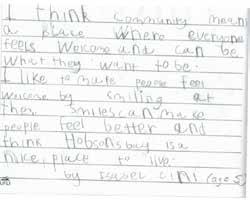 I think community mean
a place where everyone
feels welcome and can be
what they want to be.
I like to make people feel
welcome by smiling at
them smiles can make
people feel better and
think Hobsons bay is a
nice place to live.
by Isabel Cini (age 5)